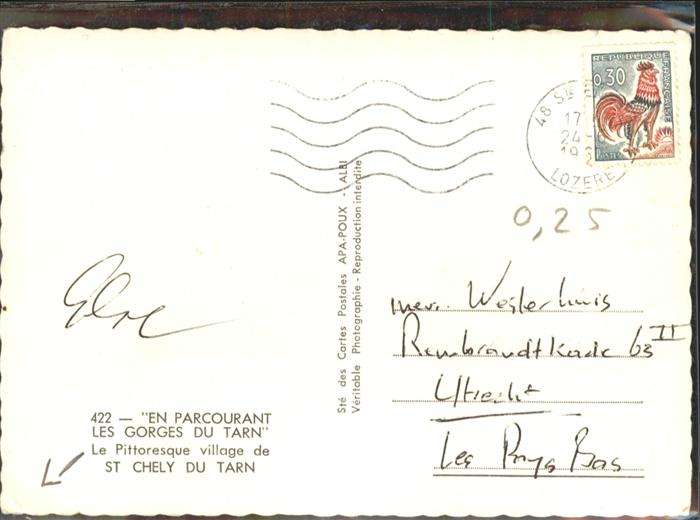 REPUBLIQUE
FRANÇAISE
0,30
POSTES
48 Ste
17
24
19
LOZERE
0,25
Sté des Cartes Postales APA-POUX - ALBI
Véritable Photographie - Reproduction interdite
mevr. Westerhuis
Rembrandtkade 63 II
Utrecht
Les Pays Bas
422 — "EN PARCOURANT
LES GORGES DU TARN"
Le Pittoresque village de
ST CHELY DU TARN